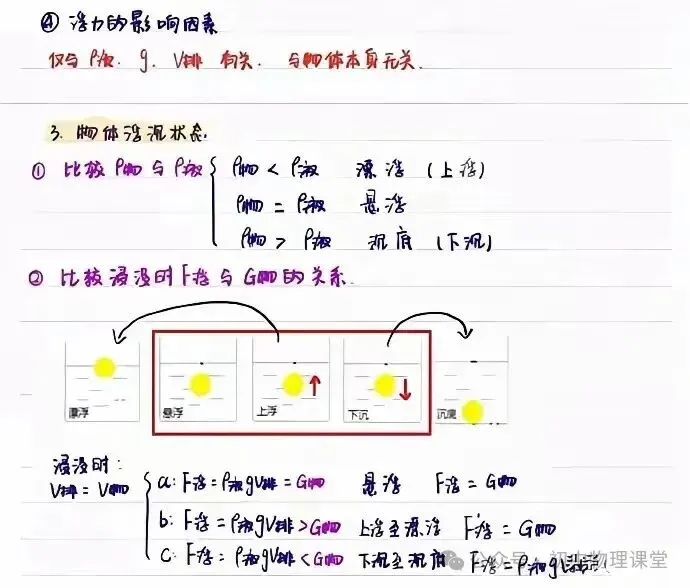 ④ 浮力的影响因素
仅与ρ液、g、V排 有关、与物体本身无关.
3. 物体浮沉状态.
① 比较ρ物与ρ液 { ρ物 < ρ液 漂浮 (上浮)
ρ物 = ρ液 悬浮
ρ物 > ρ液 沉底 (下沉)
② 比较浸没时F浮与G物的关系.
漂浮 悬浮 上浮 下沉 沉底
浸没时:
V排=V物 { a: F浮=ρ液gV排=G物 悬浮 F浮=G物
b: F浮=ρ液gV排>G物 上浮至漂浮 F'浮=G物
c: F浮=ρ液gV排<G物 下沉至沉底 F浮=ρ液gV排
公众号·初中物理课堂